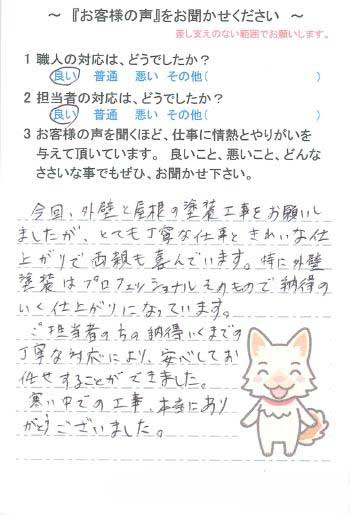 ～ 『お客様の声』をお聞かせください ～
差し支えのない範囲でお願いします。
1 職人の対応は、どうでしたか？
良い 普通 悪い その他( )
2 担当者の対応は、どうでしたか？
良い 普通 悪い その他( )
3 お客様の声を聞くほど、仕事に情熱とやりがいを
与えて頂いています。 良いこと、悪いこと、どんな
ささいな事でもぜひ、お聞かせ下さい。
今回、外壁と屋根の塗装工事をお願いし
ましたが、とても丁寧な仕事ときれいな仕
上がりで両親も喜んでいます。特に外壁
塗装はプロフェッショナルそのもので納得の
いく仕上がりになっています。
ご担当者の納得いくまでの
丁寧な対応により、安心してお
任せすることができました。
寒い中での工事、本当にあり
がとうございました。